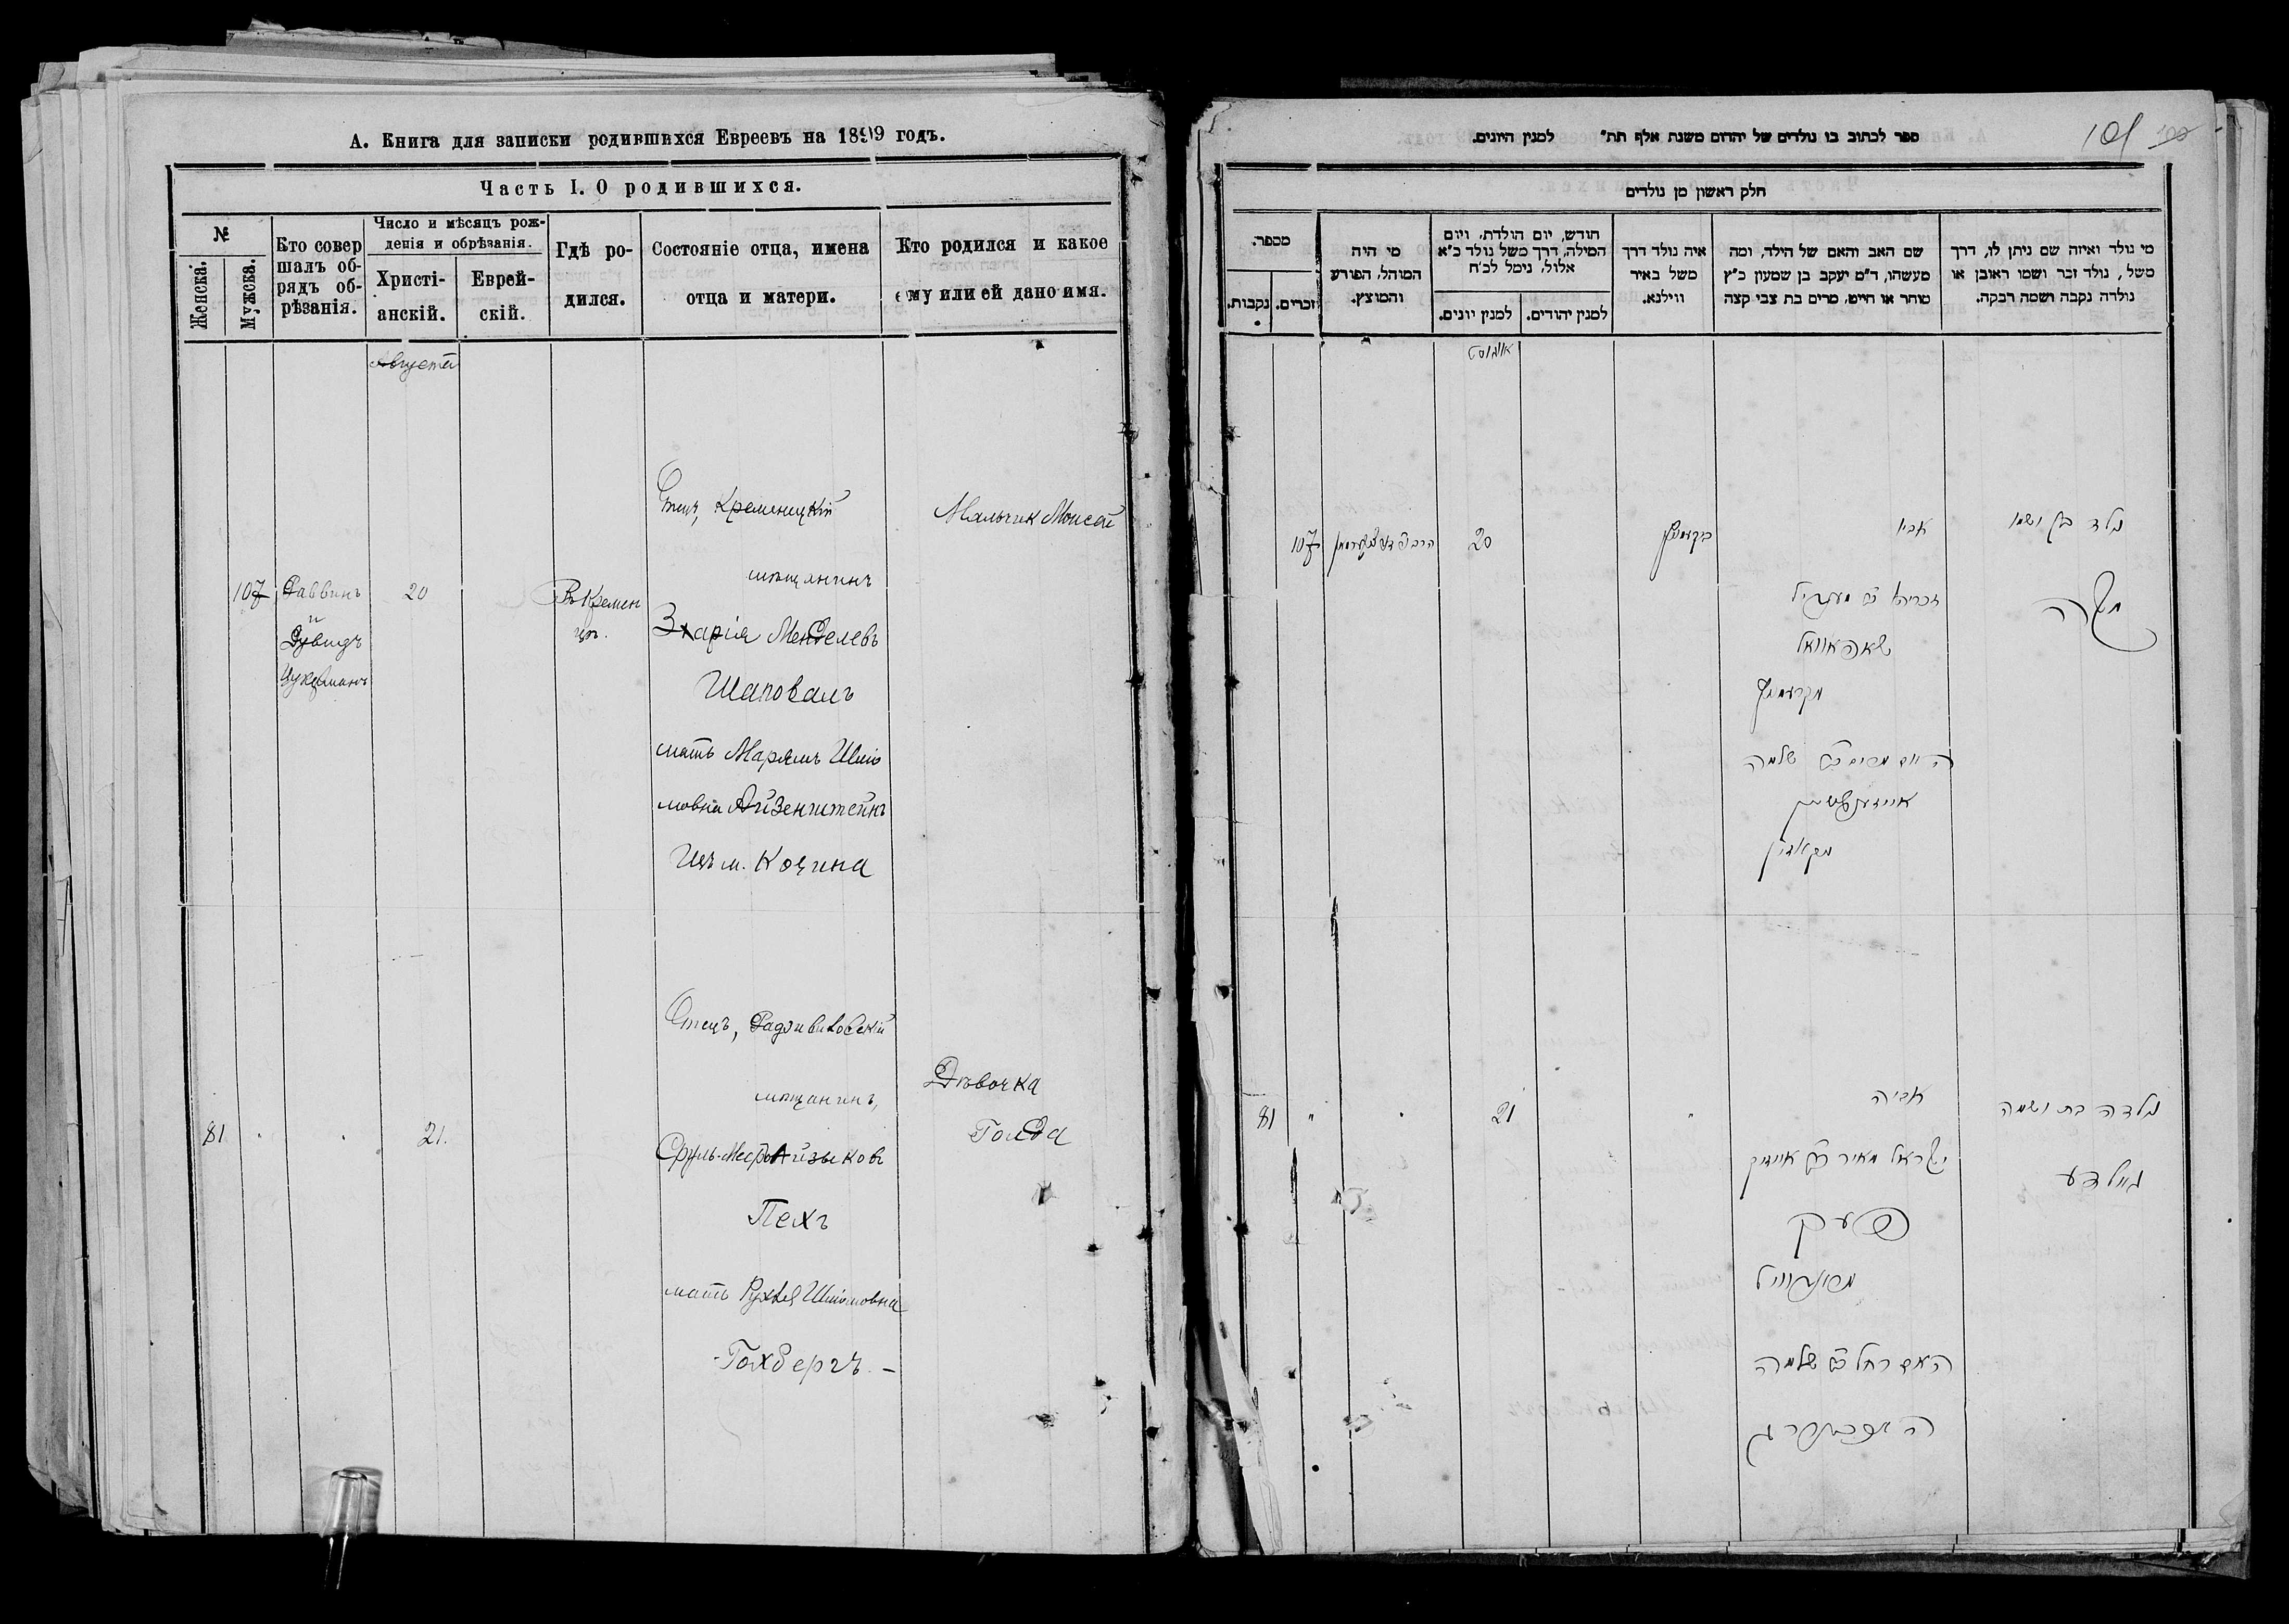 А. Книга для записки родившихся Евреевъ на 1899 годъ.
Часть I. О родившихся.
№
Женска.
Мужска.
Кто совер
шалъ об-
рядъ об-
рѣзанія.
Число и мѣсяцъ рож-
денія и обрѣзанія.
Христі-
анскій.
Еврей-
скій.
Гдѣ ро-
дился.
Состояніе отца, имена
отца и матери.
Кто родился и какое
ему или ей дано имя.
Августа
107
Раввинъ
и
Дувидъ
Цукерманъ
20
Въ Кремен
цѣ.
Отецъ, Кременицкій
мѣщанинъ
Захарія Менделевъ
Шаповалъ
мать Марямъ Шлио
мовна Айзенштейнъ
Изъ м. Козина
Мальчик Моисей
81
21.
Отецъ, Радзивиловскій
мѣщанинъ,
Сруль-Мееръ Айзыковъ
Пехъ
мать Рухля Шліомовна
Гохбергъ. –
Дѣвочка
Голда
ספר לכתוב בו נולדים של יהדום משנת אלף תת״ למנין היונים.
101
100
חלק ראשון מן נולדים
מספר.
נקבות.
זכרים.
מי היה
המוהל, הפורע
והמוצץ.
חודש, יום הולדת, ויום
המילה, דרך משל נולד כ״א
אלול, נימל לכ״ח
למנין יונים.
למנין יהודים.
איה נולד דרך
משל באיר
ווילנא.
שם האב והאם של הילד, ומה
מעשהו, ד״מ יעקב בן שמעון כ״ץ
סוחר או חייט, מרים בת צבי קצה
מי נולד ואיזה שם ניתן לו, דרך
משל, נולד זכר ושמו ראובן או
נולדה נקבה ושמה רבקה.
אויגוסט
107
20
בקרעמניץ
אביו
זכריה ב״ר מענדיל
שאפאוואל
מקרעמניץ
האם מרים ב״ר שלמה
אייזענשטיין
מקאזין
נולד בן ושמו
משה
81 "
"
21
"
אביה
ישראל מאיר ב״ר אייזיק
פעך
מראדוויל
האם רחל ב״ר שלמה
נולדה בת ושמה
גאלדע